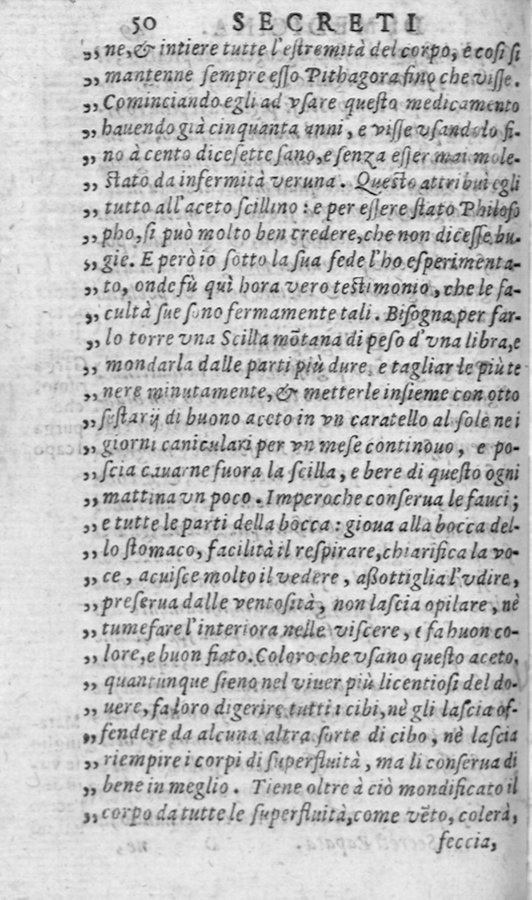 50 SECRETI
„ ne, & intiere tutte l'estremità del corpo, e così si
„ mantenne sempre esso Pithagora fino che visse.
„ Cominciando egli ad vsare questo medicamento
„ hauendo già cinquanta anni, e visse vsandolo fi-
„ no à cento dicesette sano, e senza esser mai mole-
„ stato da infermità veruna. Questo attribuì egli
„ tutto all'aceto scillino: e per essere stato Philoso
„ pho, si può molto ben credere, che non dicesse bu-
„ gie. E però io sotto la sua fede l'ho esperimenta-
„ to, onde fù quì hora vero testimonio, che le fa-
„ cultà sue sono fermamente tali. Bisogna per far-
„ lo torre vna Scilla mõtana di peso d'vna libra, e
„ mondarla dalle parti più dure, e tagliar le più te
„ nere minutamente, & metterle insieme con otto
„ sestarij di buono aceto in vn caratello al sole nei
„ giorni caniculari per vn mese continouo, e po-
„ scia cauarne fuora la scilla, e bere di questo ogni
„ mattina vn poco. Imperoche conserua le fauci;
„ e tutte le parti della bocca: gioua alla bocca del-
„ lo stomaco, facilità il respirare, chiarifica la vo-
„ ce, acuisce molto il vedere, assottiglia l'vdire,
„ preserua dalle ventosità, non lascia opilare, nè
„ tumefare l'interiora nelle viscere, e fa buon co-
„ lore, e buon fiato. Coloro che vsano questo aceto,
„ quantunque sieno nel viuer più licentiosi del do-
„ uere, fa loro digerire tutti i cibi, nè gli lascia of-
„ fendere da alcuna altra sorte di cibo, nè lascia
„ riempire i corpi di superfluità, ma li conserua di
„ bene in meglio. Tiene oltre à ciò mondificato il
„ corpo da tutte le superfluità, come vẽto, colerà,
feccia,